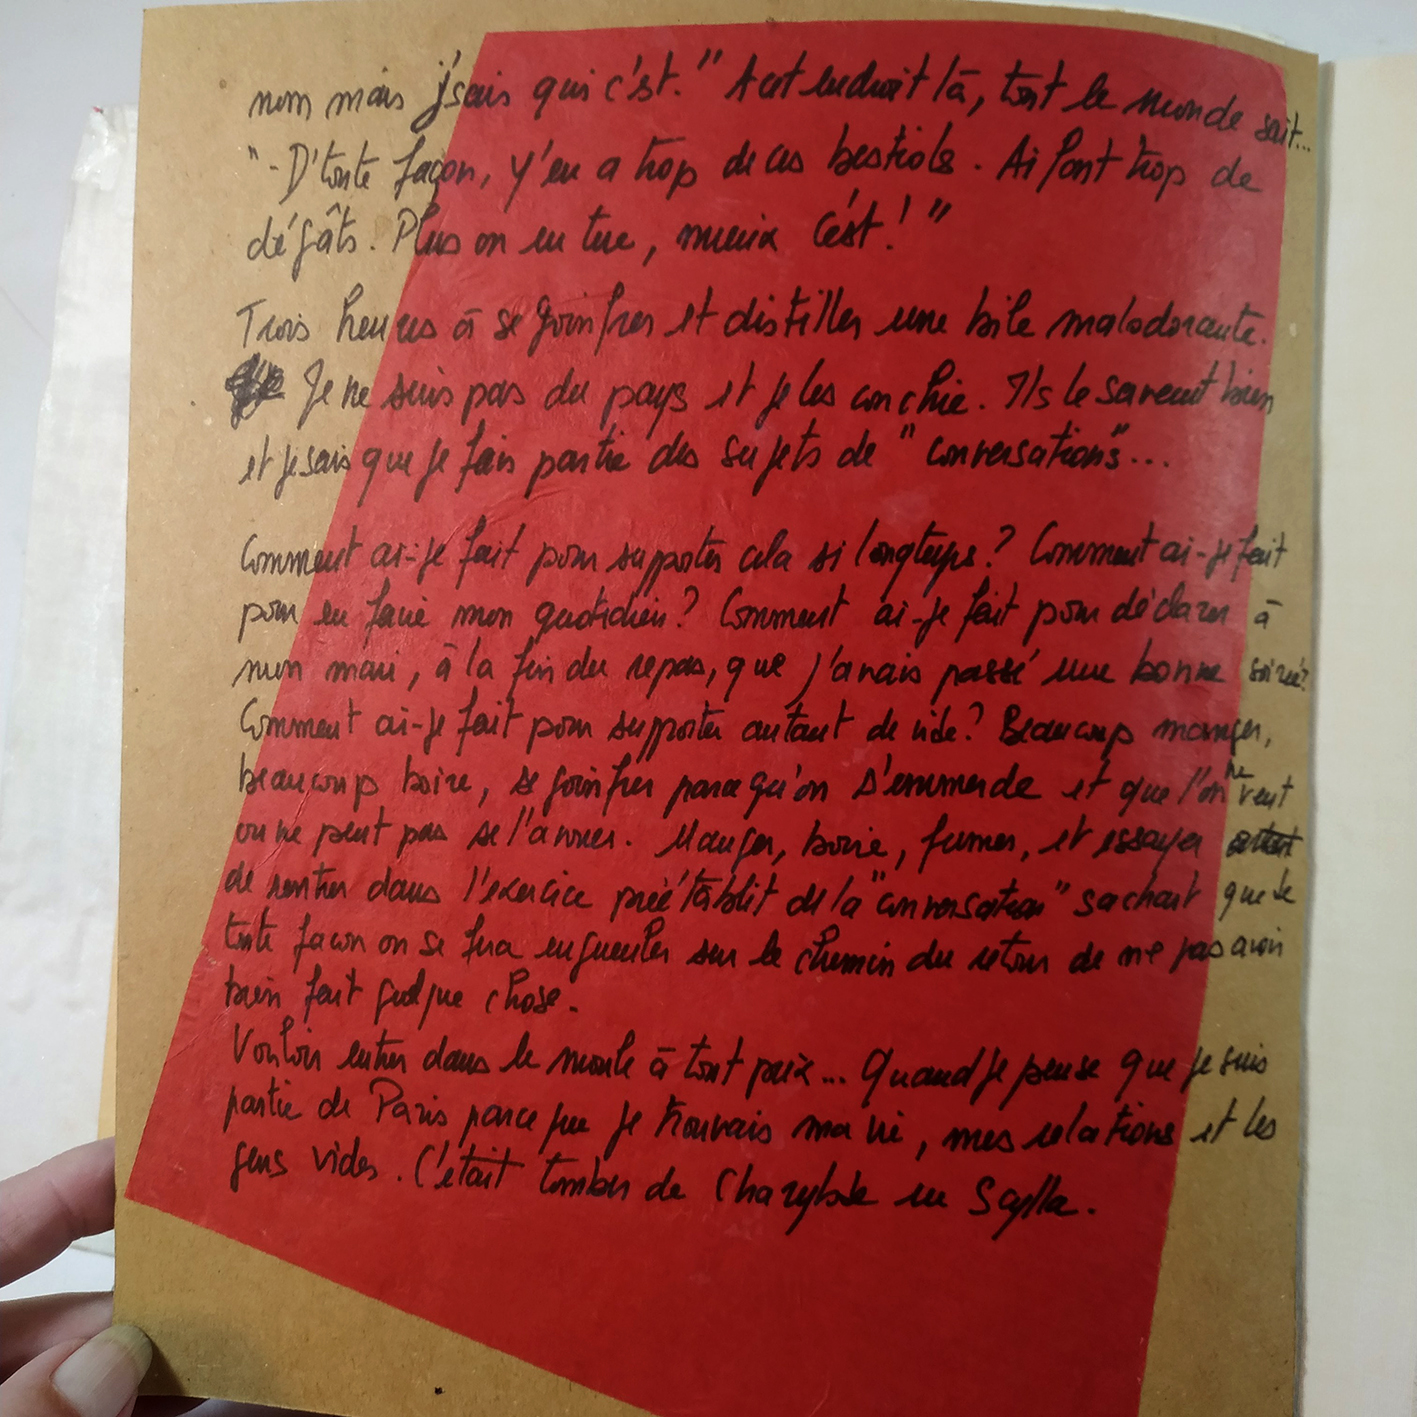 nom mais j'sais qui c'est." A cet endroit là, tout le monde sait...
"- D'toute façon, y'en a trop de ces bestiols. Ai font trop de
dégâts. Plus on en tue, mieux c'est!"
Trois heures à se goinfrer et distiller une bile malodorante.
Je ne suis pas du pays et je les conchie. Ils le savent bien
et je sais que je fais partie des sujets de "conversations"...
Comment ai-je fait pour supporter cela si longtemps? Comment ai-je fait
pour en faire mon quotidien? Comment ai-je fait pour déclarer à
mon mari, à la fin du repas, que j'avais passé une bonne soirée?
Comment ai-je fait pour supporter autant de vide? Beaucoup manger,
beaucoup boire, se goinfrer parce qu'on s'emmerde et que l'on ne veut
ou ne peut pas se l'avouer. Manger, boire, fumer, et essayer
de rentrer dans l'exercice préétablit de la "conversation" sachant que de
toute facon on se fera engueuler sur le chemin du retour de ne pas avoir
bien fait quelque chose.
Vouloir entrer dans le moule à tout prix... Quand je pense que je suis
partie de Paris parce que je trouvais ma vie, mes relations et les
gens vides. C'était tomber de Charybde en Scylla.